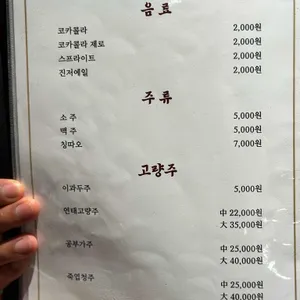 음료
코카콜라 2,000원
코카콜라 제로 2,000원
스프라이트 2,000원
진저에일 2,000원
주류
소주 5,000원
맥주 5,000원
칭따오 7,000원
고량주
이과두주 5,000원
연태고량주 中 22,000원
大 35,000원
공부가주 中 25,000원
大 40,000원
죽엽청주 中 25,000원
大 40,000원